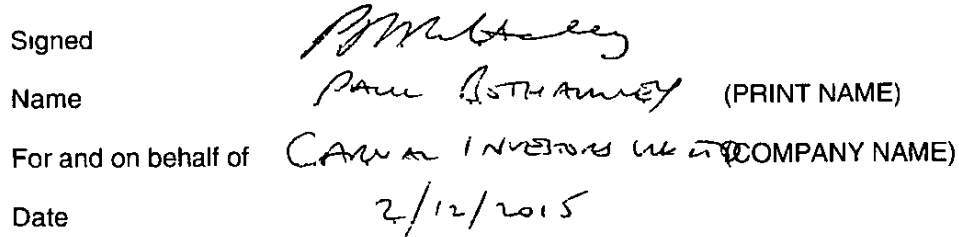 Signed
Name PAUL (PRINT NAME)
For and on behalf of INVESTORS UK LTD (COMPANY NAME)
Date 2/12/2015